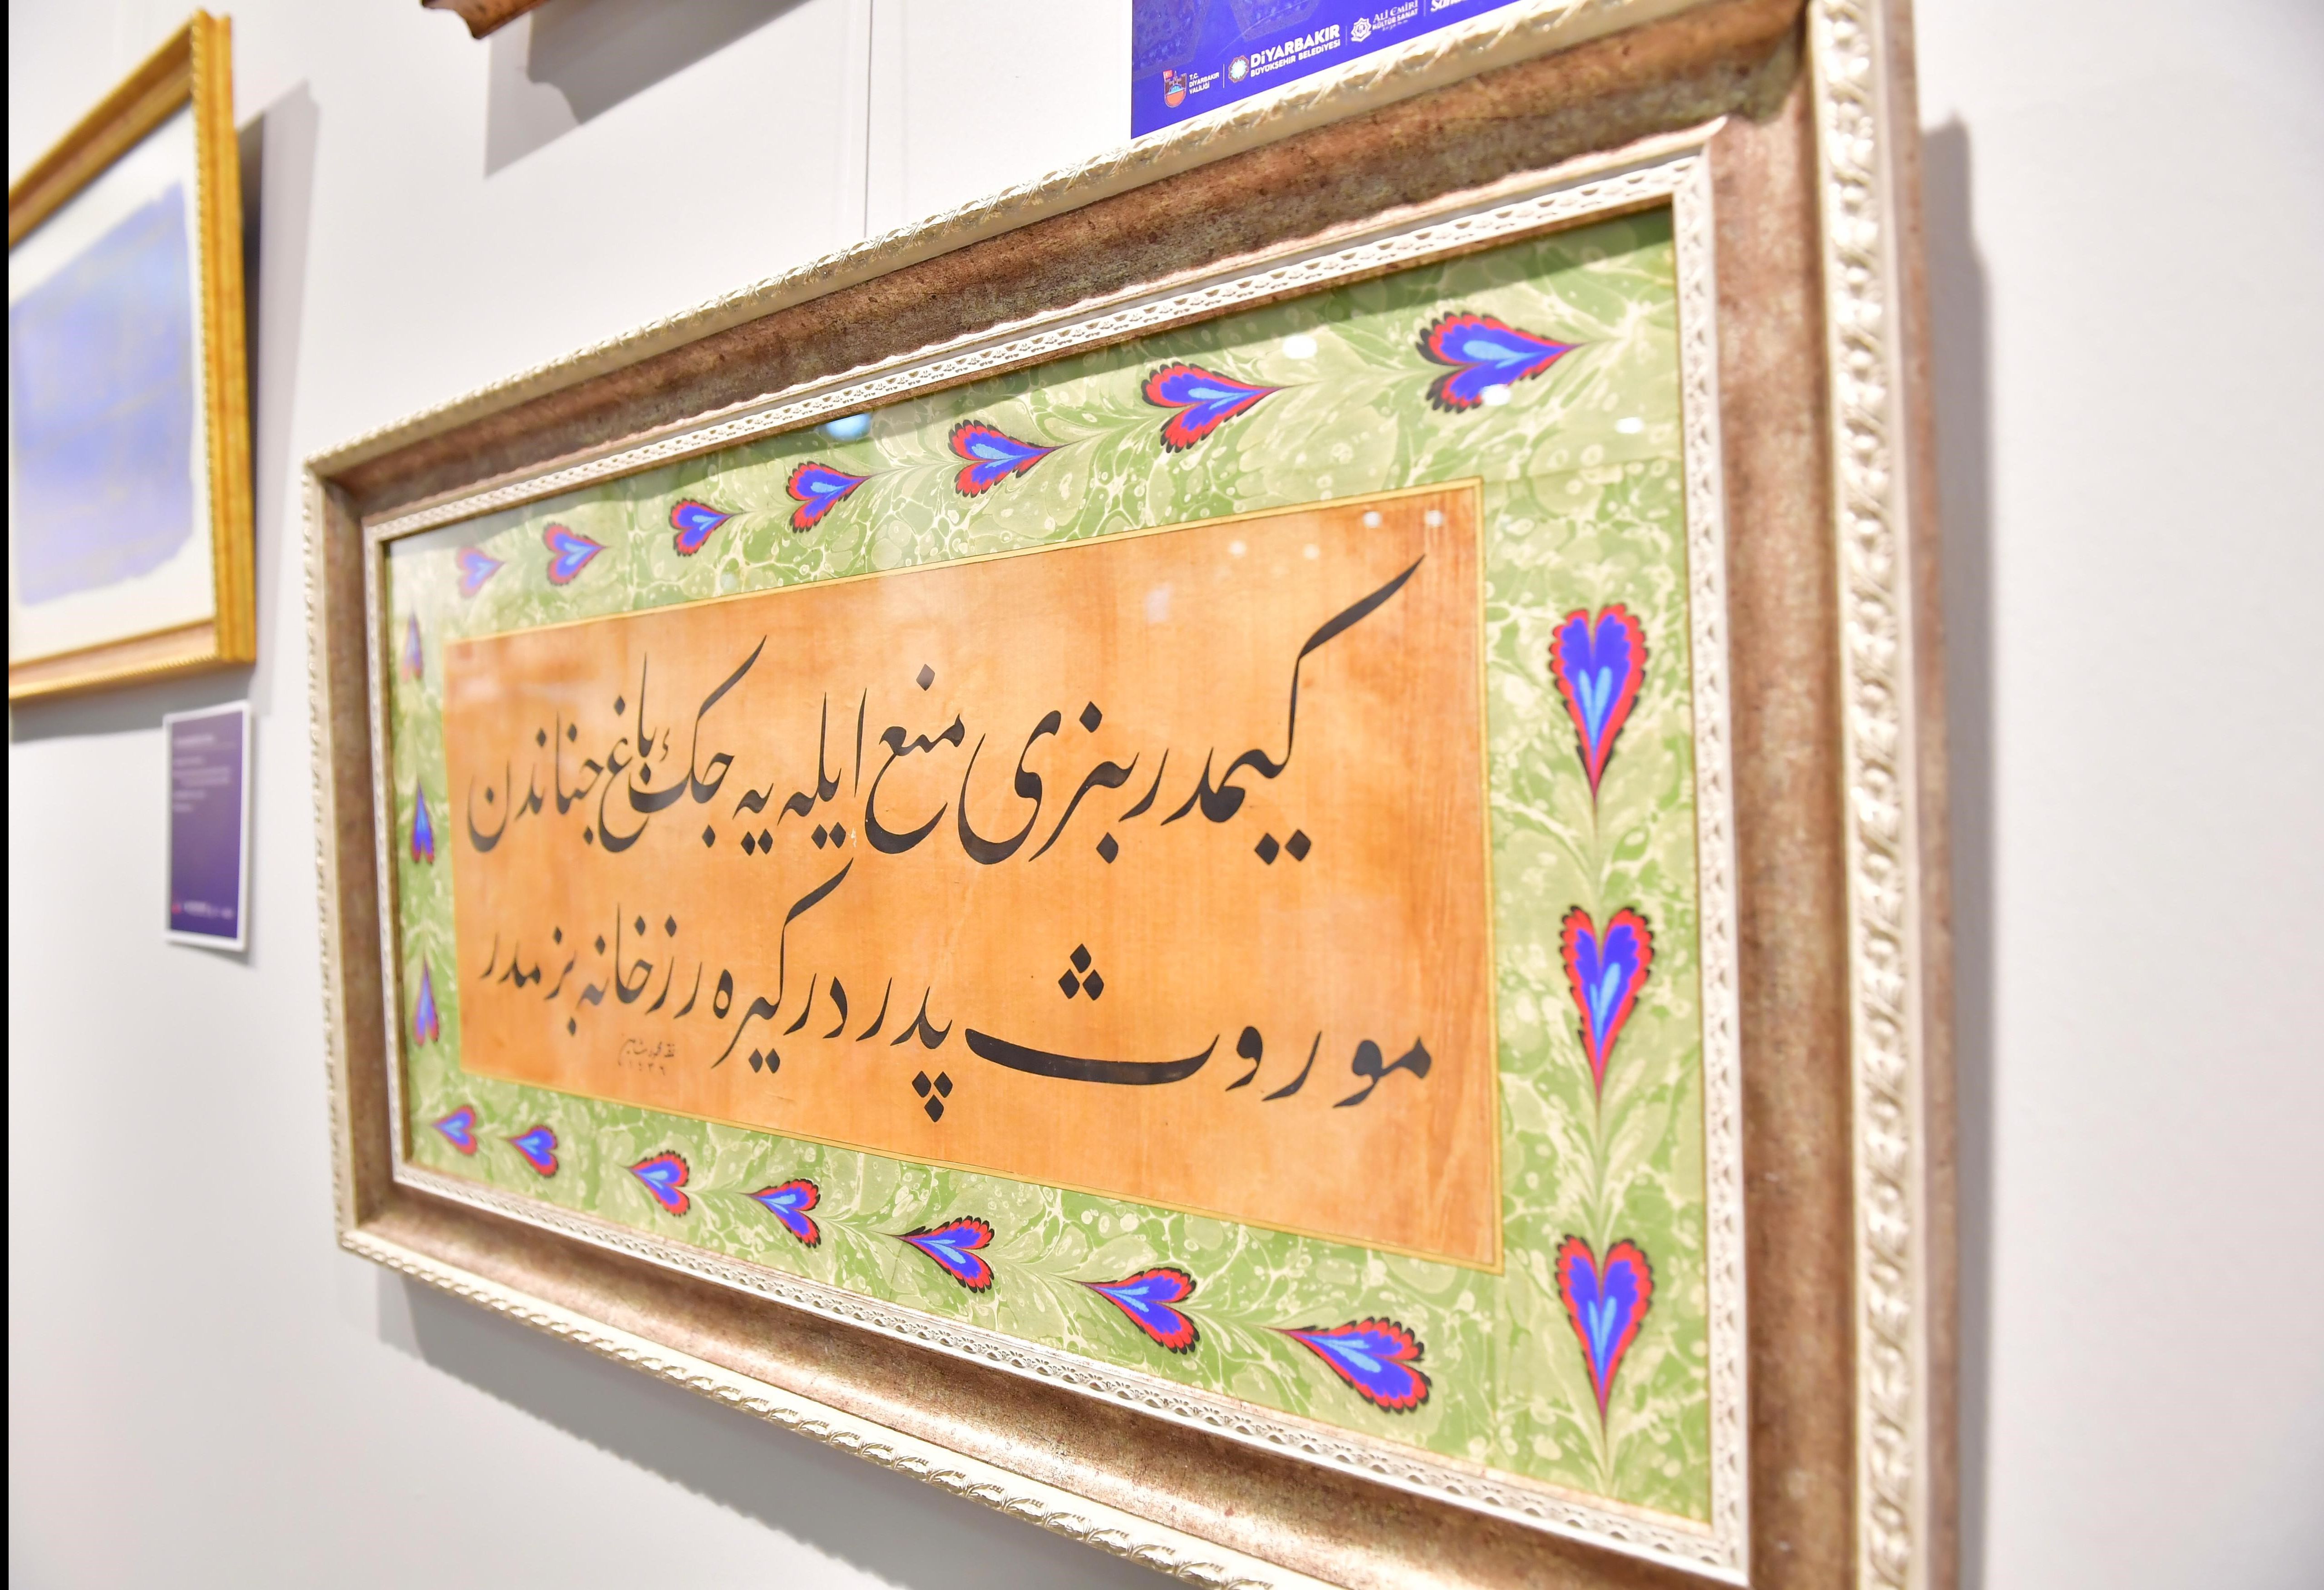 T.C.
DİYARBAKIR
VALİLİĞİ
DİYARBAKIR
BÜYÜKŞEHİR BELEDİYESİ
ALİ EMİRİ
KÜLTÜR SANAT
كیمدر بزی منع ایله یه جك باغ جناندن
موروث پدردر كیره رز خانه بزمدر
١٤٣٩